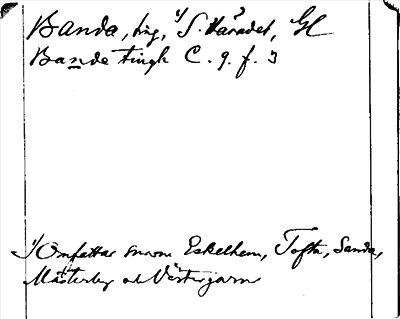 Banda, ting, 1/ S. häradet, Gl
Bande tingh C. 9. f. 3
1/ Omfattar socnen Eskelhem, Tofta, Sanda,
Mästerby och Västergarn